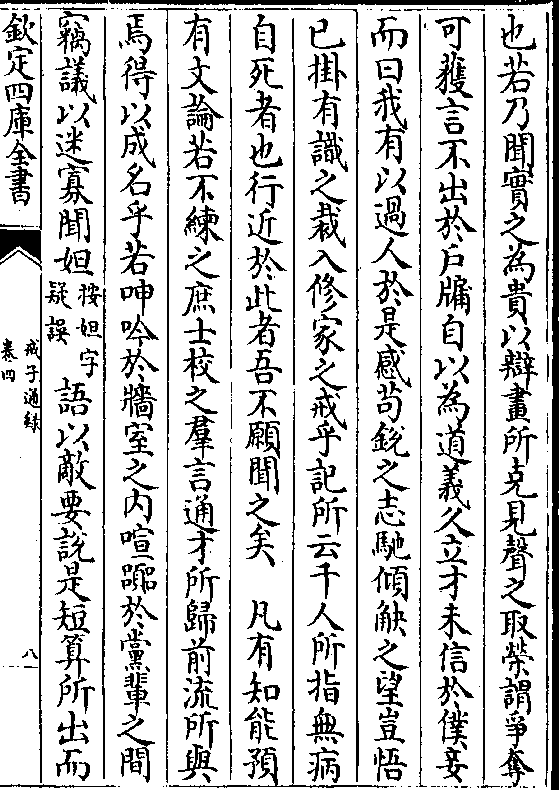 也若乃聞實之為貴以辯畫所克見聲之取榮謂爭奪
可獲言不出於戶牖自以為道義久立才未信於僕妾
而曰我有以過人於是感茍銳之志馳傾觖之望豈悟
已掛有識之裁入修家之戒乎記所云千人所指無病
自死者也行近於此者吾不願聞之矣　凡有知能預
有文論若不練之庶士校之羣言通才所歸前流所與
焉得以成名乎若呻吟於牆室之內喧囂於黨輩之間
竊議以迷寡聞妲按妲字疑誤語以敵要說是短算所出而
欽定四庫全書
戒子通錄
卷四
八